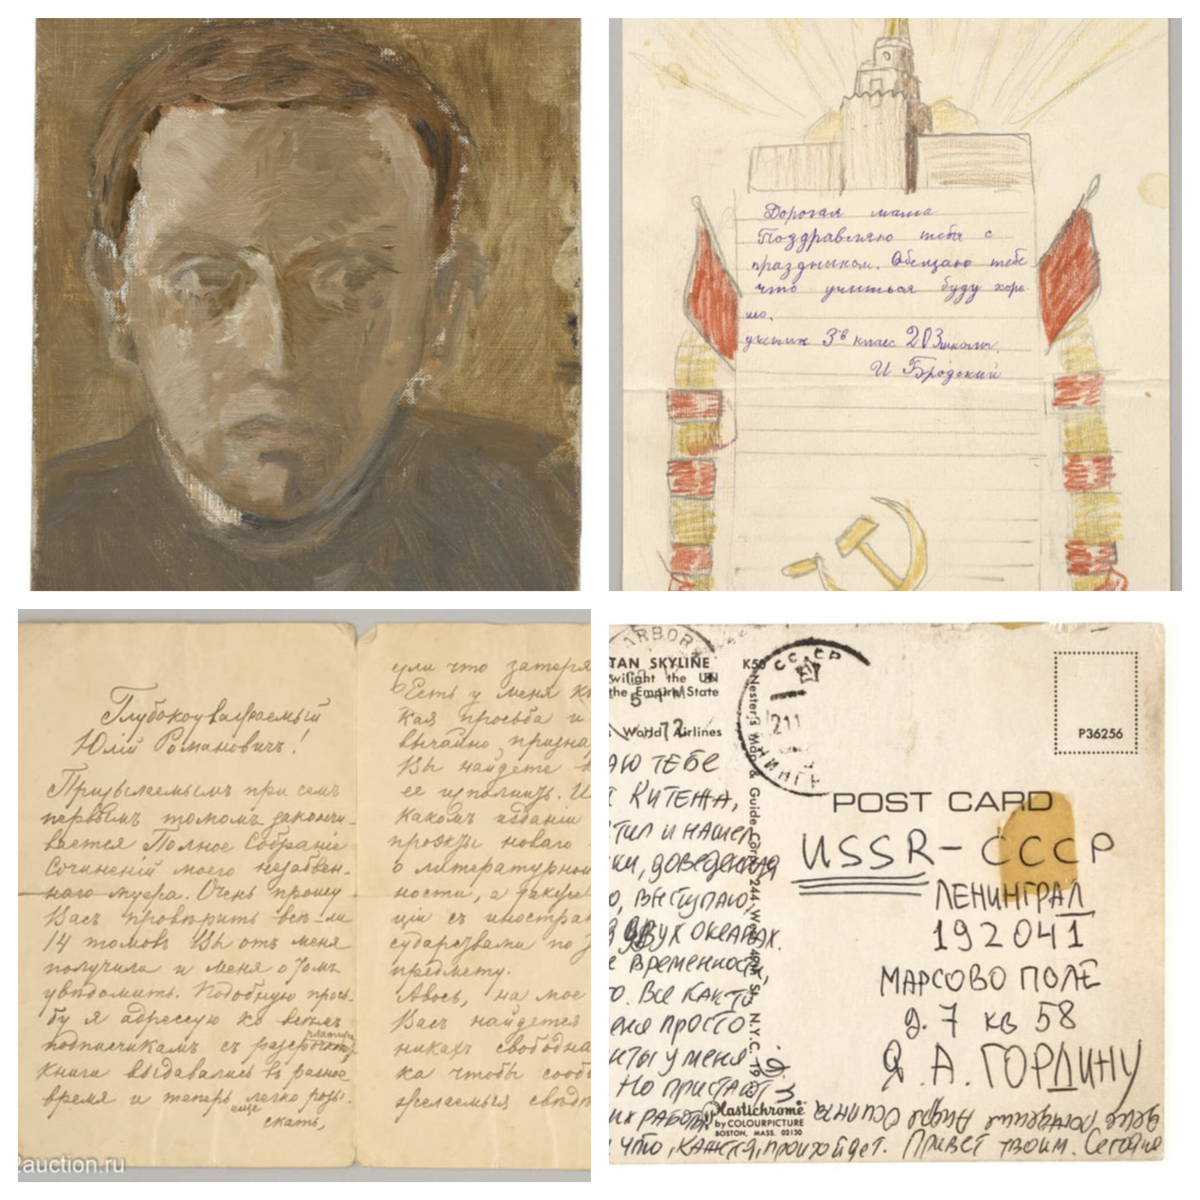 Дорогая мама
Поздравляю тебя с
праздником. Обещаю тебе
что учиться буду хоро-
шо.
ученик 3"в класс 203 школы.
И Бродский
Глубокоуважаемый
Юлій Романовичъ!
Присылаемымъ при семъ
первымъ томомъ закончи-
вается Полное Собраніе
Сочиненій моего незабвен-
наго мужа. Очень прошу
Васъ провѣрить всѣ-ли
14 томовъ Вы отъ меня
получили и меня о томъ
увѣдомить. Подобную прось-
бу я адресую ко всѣмъ
подписчикамъ съ
книги выдавались въ разное
время и теперь легко розы-
еще
скать,
ули что затеря
Есть у меня к
кая просьба и
вычайно призна
Вы найдете
ее исполнить. И
какомъ изданіи
проэкты новаго
о литературной
ности, а также
ціи съ иностран
сударствами по
предмету.
Авось, на мое
Васъ найдется
свободна
ка чтобы сооб
желаемыя свѣдѣ
2auction.ru
ARBOR
TAN SKYLINE
wilight the UN
the Empire State
World Airlines
K50
СССР
Nester's Map & Guide Corp. 244 W. 49th St. N.Y.C. 19
P36256
POST CARD
USSR - СССР
ЛЕНИНГРАД
192041
МАРСОВО ПОЛЕ
д. 7 кв 58
Я. А. ГОРДИНУ
АЮ ТЕБЕ
КИТЕЖА,
ТИЛ И НАШЕЛ
КИ, ДОВЕДЕННАЯ
О, ВЫСТУПАЮ
ДВУХ ОКЕАНАХ.
Е ВРЕМЕННОСТИ,
О. ВСЕ КАК-ТО
ПРОСТО
У МЕНЯ
НО ПРИСТАЮТ
ИХ РАБОТЫ
ЧТО, КАЖЕТСЯ, ПРОИЗОЙДЕТ. ПРИВЕТ ТВОИМ. СЕГОДНЯ
ДЕНЬ РОЖДЕНИЯ АНДРЕЯ ОСИПЫЧА
Plastichrome
by COLOURPICTURE
BOSTON, MASS. 02130